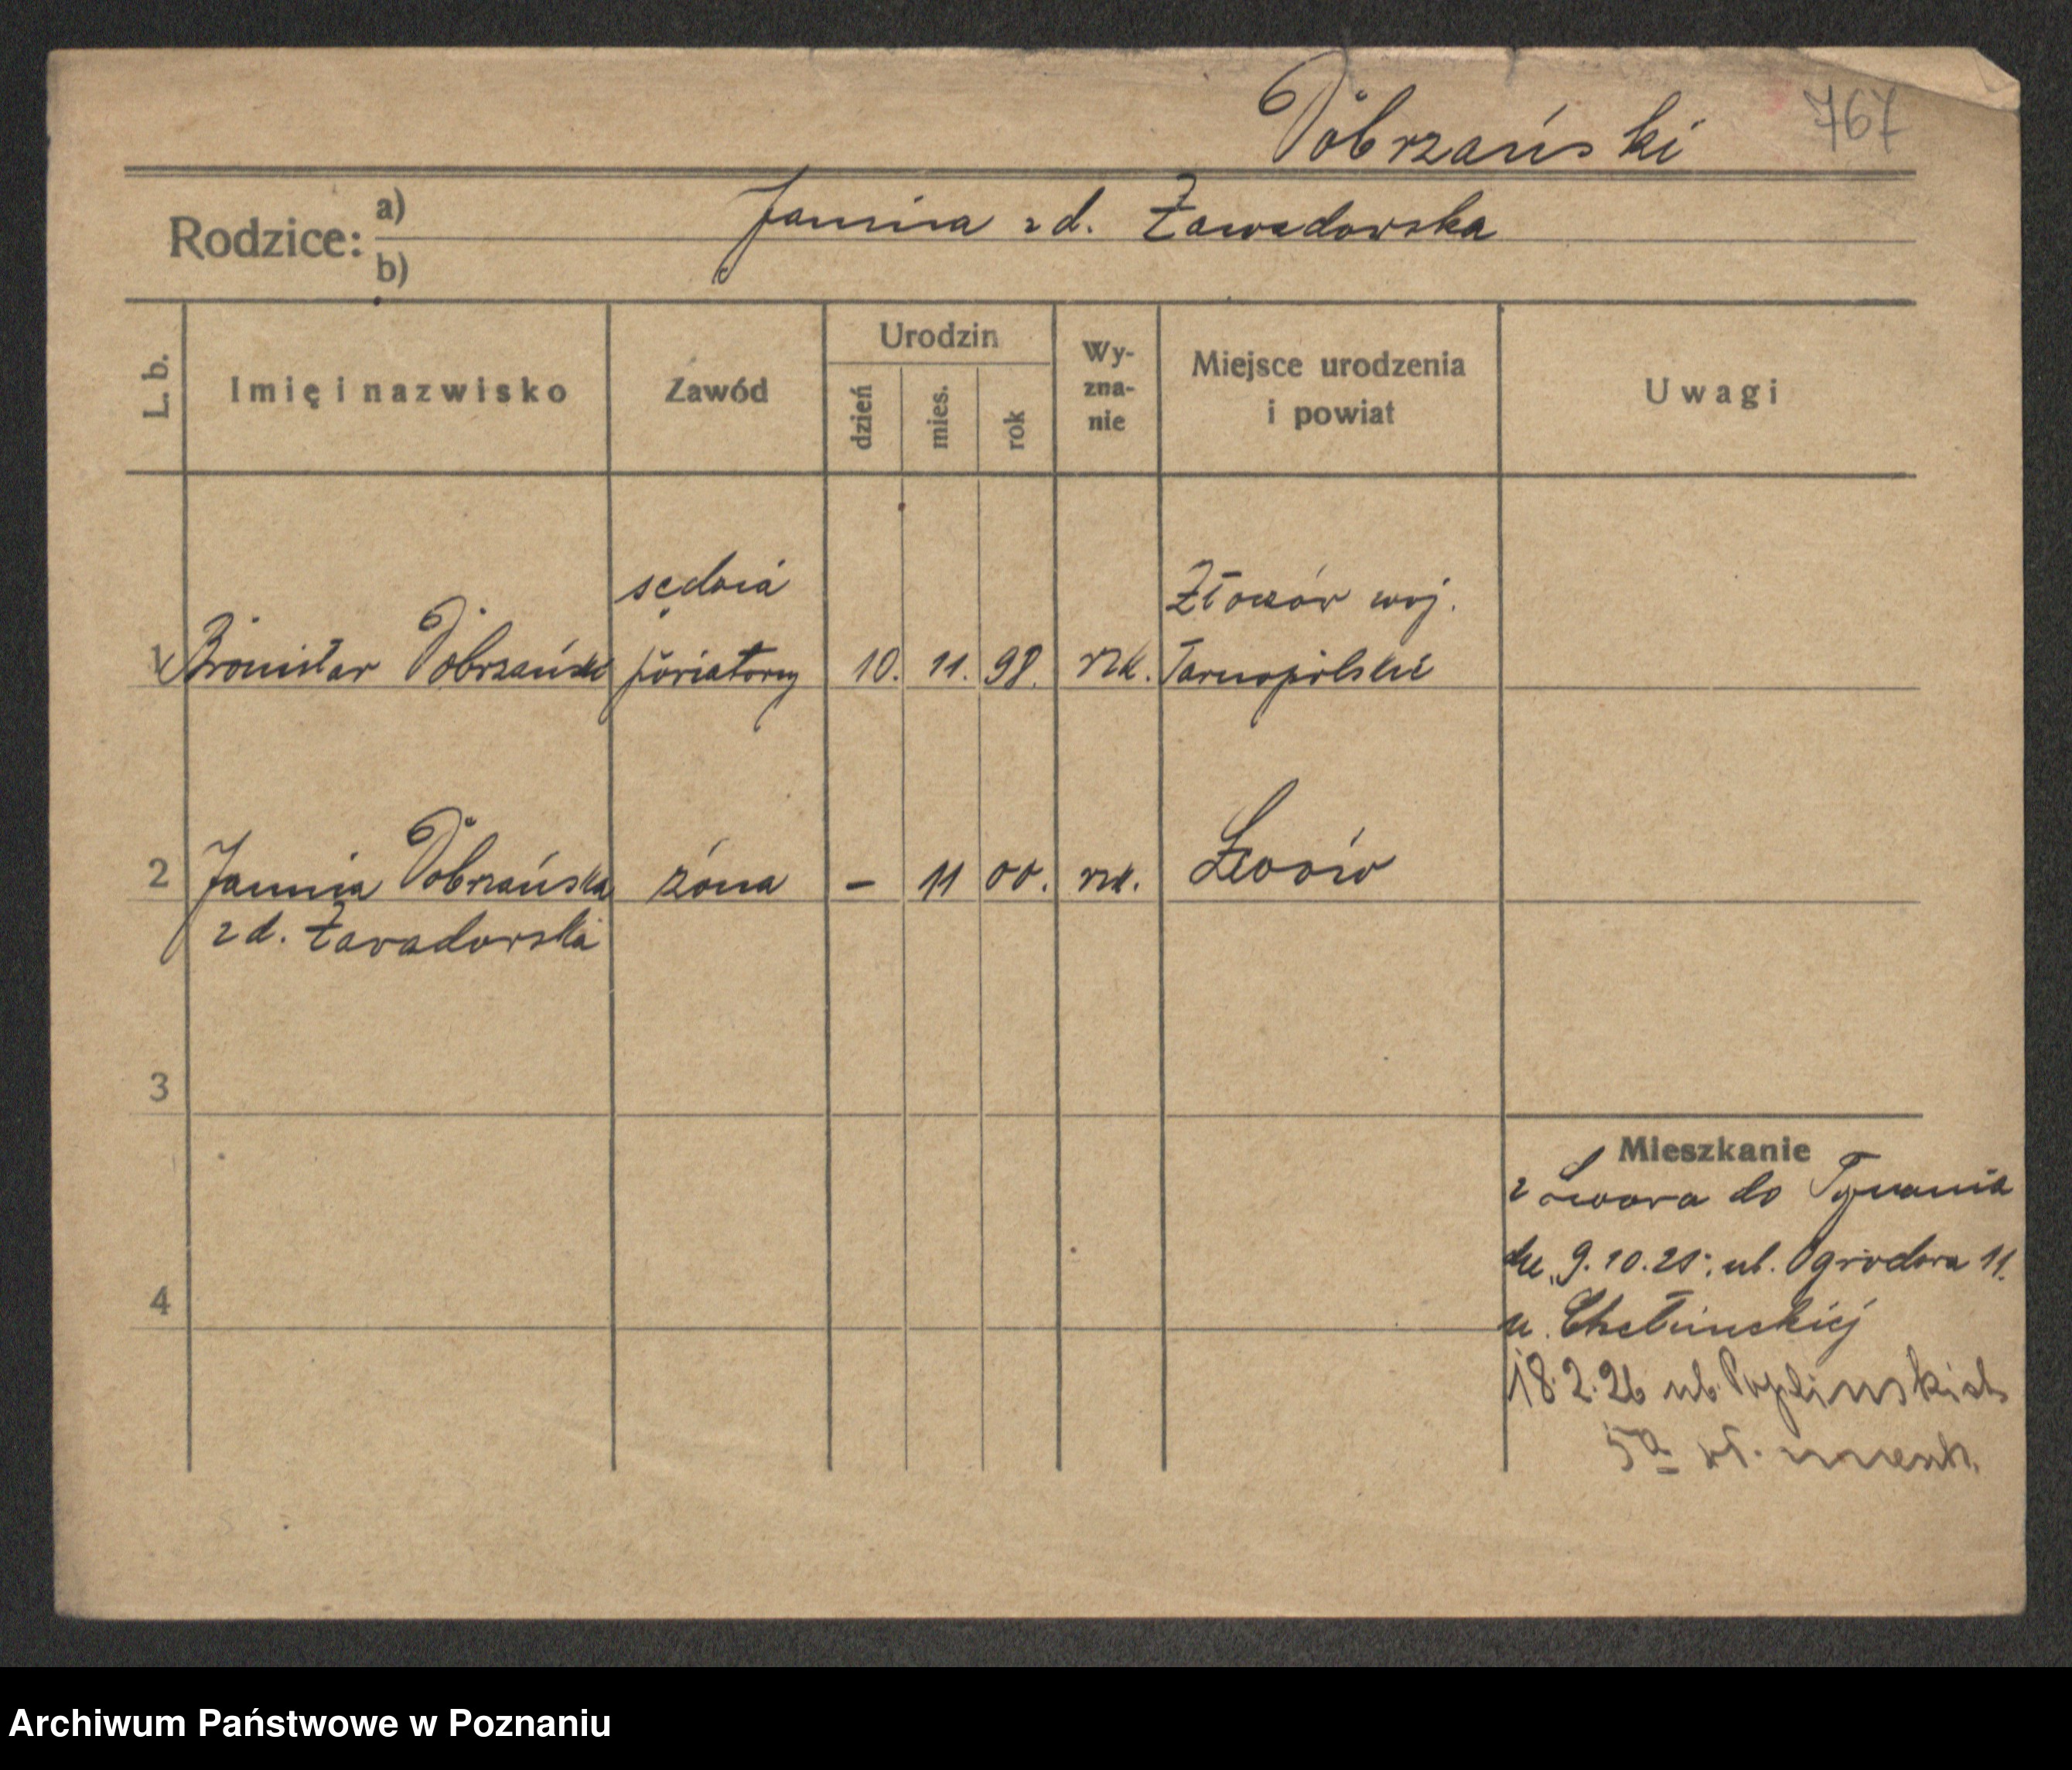 Dobrzański 767
Rodzice: a) Janina zd. Zawadowska
b)
L. b.
Imię i nazwisko
Zawód
Urodzin
dzień
mies.
rok
Wy-
zna-
nie
Miejsce urodzenia
i powiat
Uwagi
sędzia
Złoczów woj.
1 Bronisław Dobrzański powiatowy 10. 11. 98. rzk. Tarnopolskie
2 Janina Dobrzańska żona – 11 00. rzk. Lwów
zd. Zawadowska
3
4
Mieszkanie
z Lwowa do
9.10.25. ul. Ogrodowa 11.
u. Chełmickiej
18.2.26 ul.
5a wł. mieszk.
Archiwum Państwowe w Poznaniu